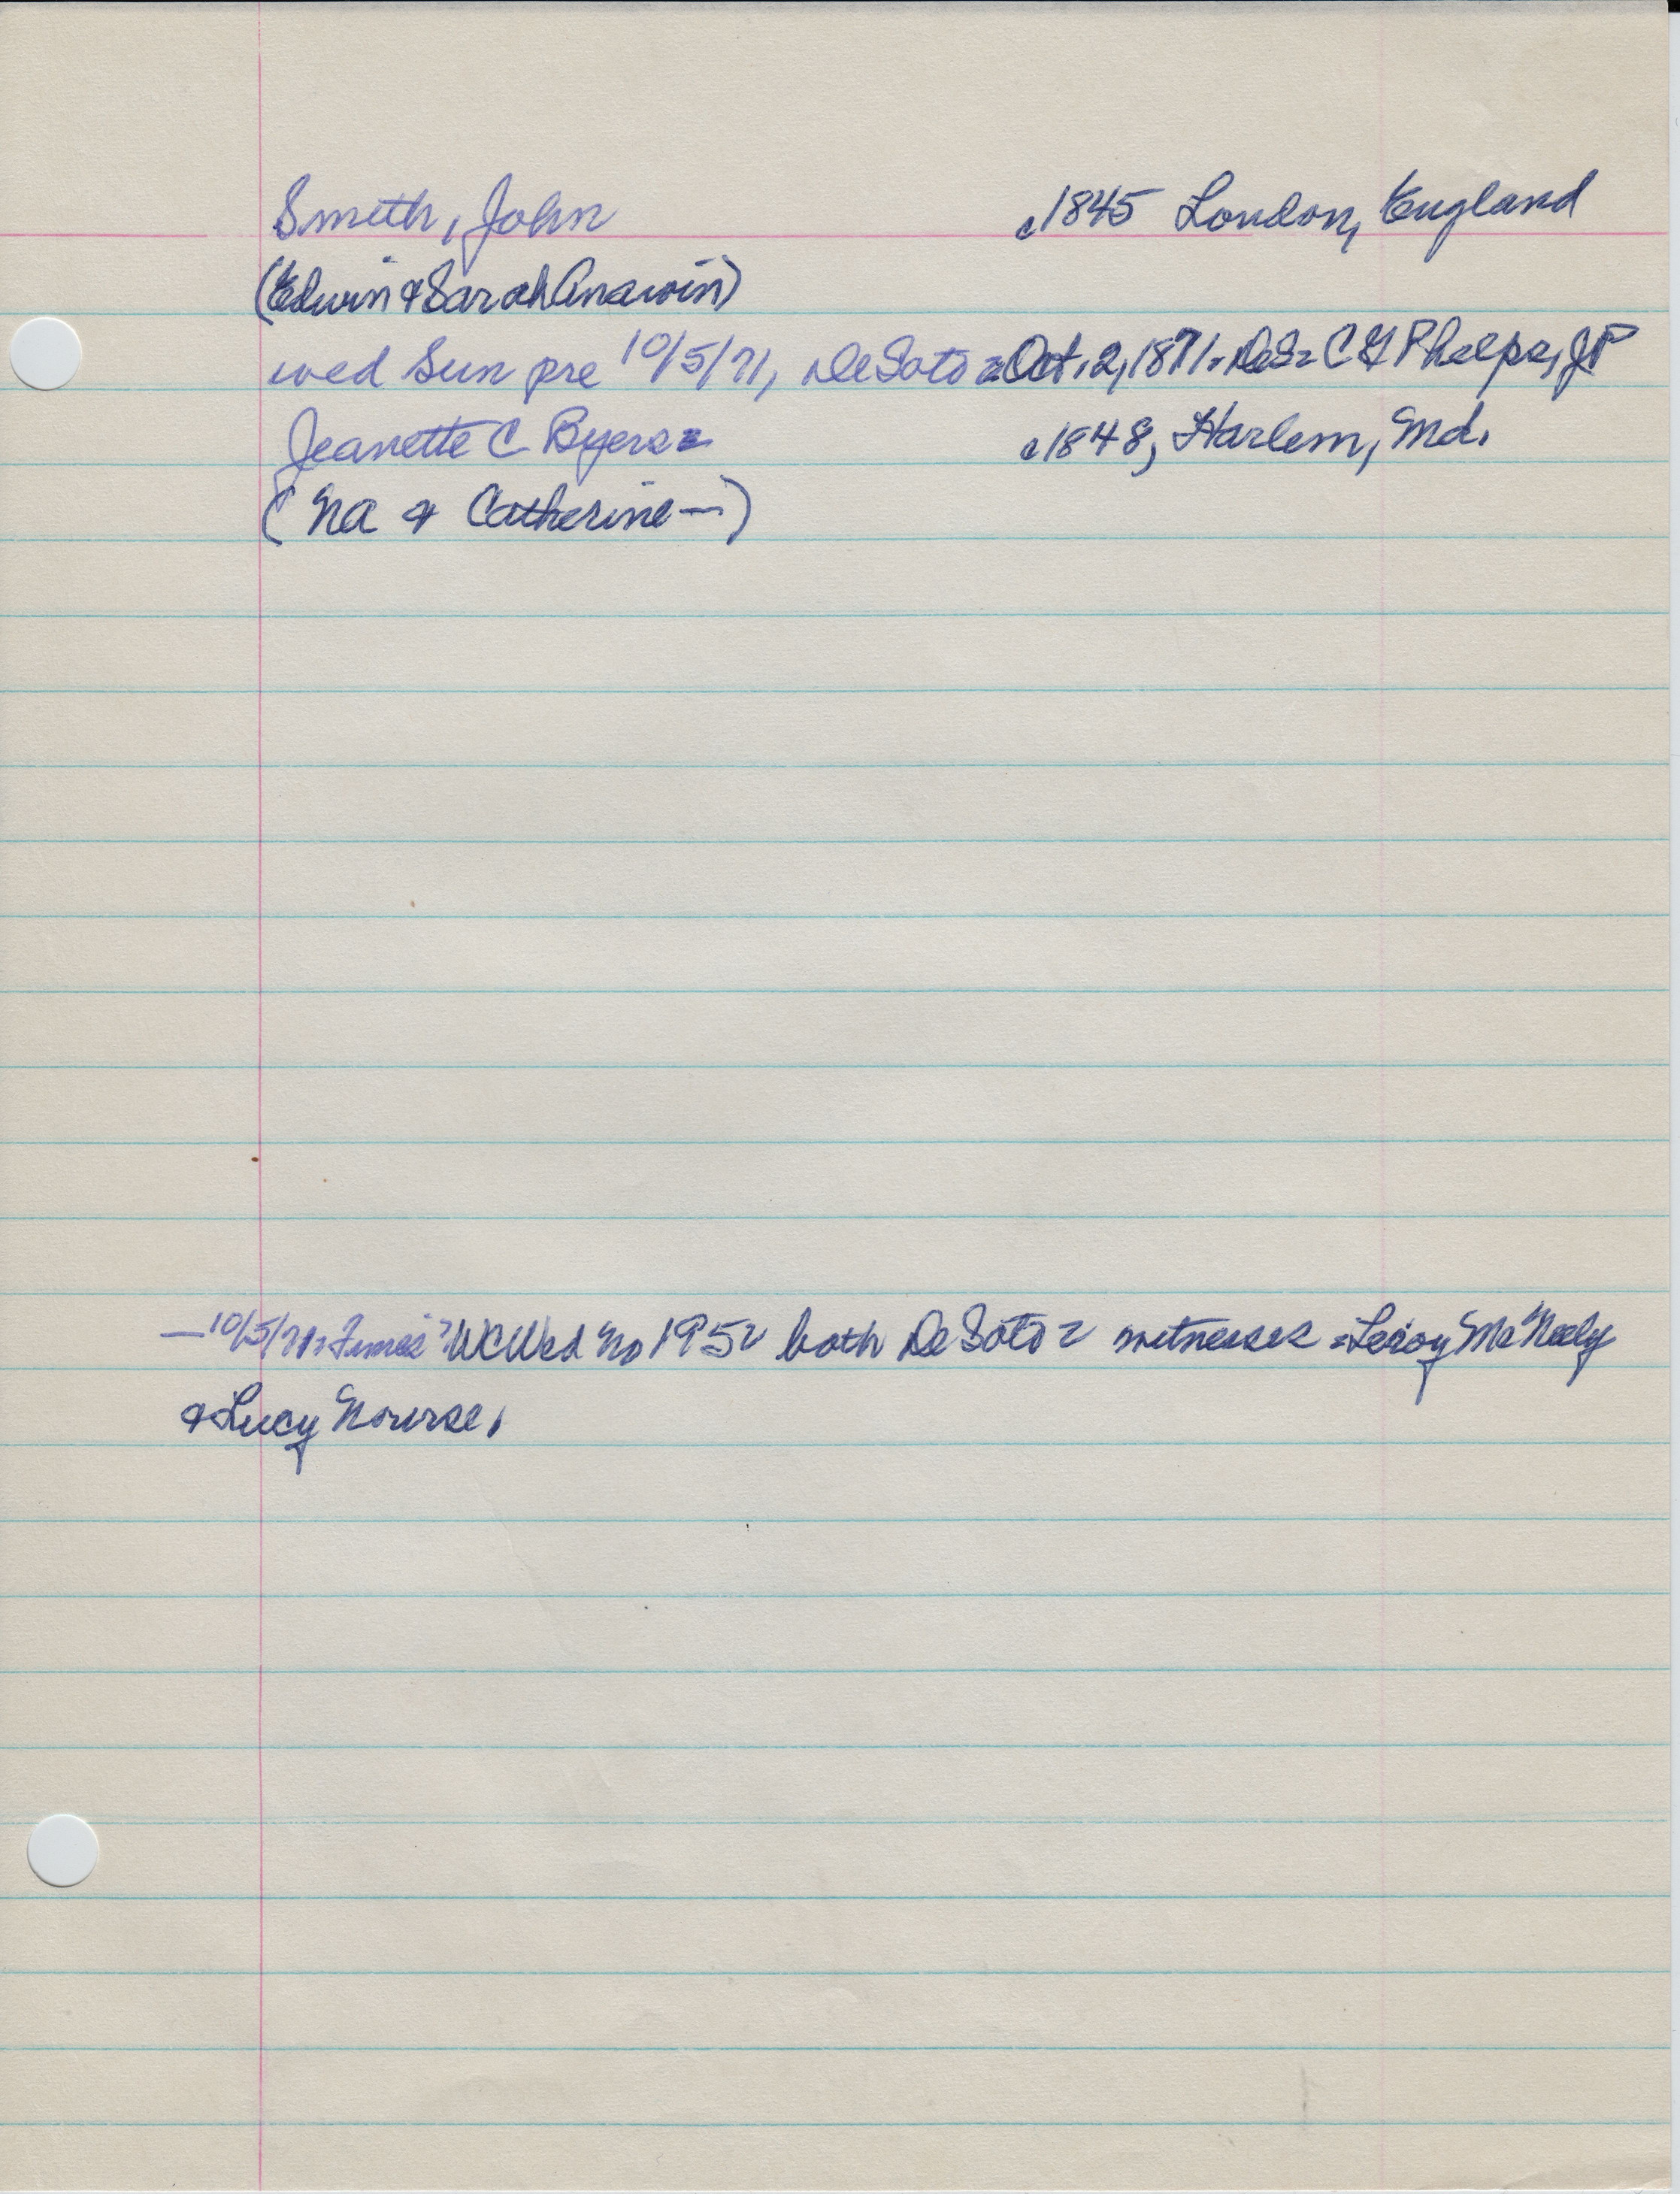 Smith, John c1845 London, England
(Edwin & Sarah Anawin)
wed Sun pre 10/5/71, DeSoto = Oct. 2, 1871. DeS= C G Phelps, JP
Jeanette C Byers= c1848, Harlem, Md.
(NA & Catherine —)
—10/5/71= Times= WCWed No 195= both DeSoto = witnesses = Leroy McNeely
& Lucy Nourse.